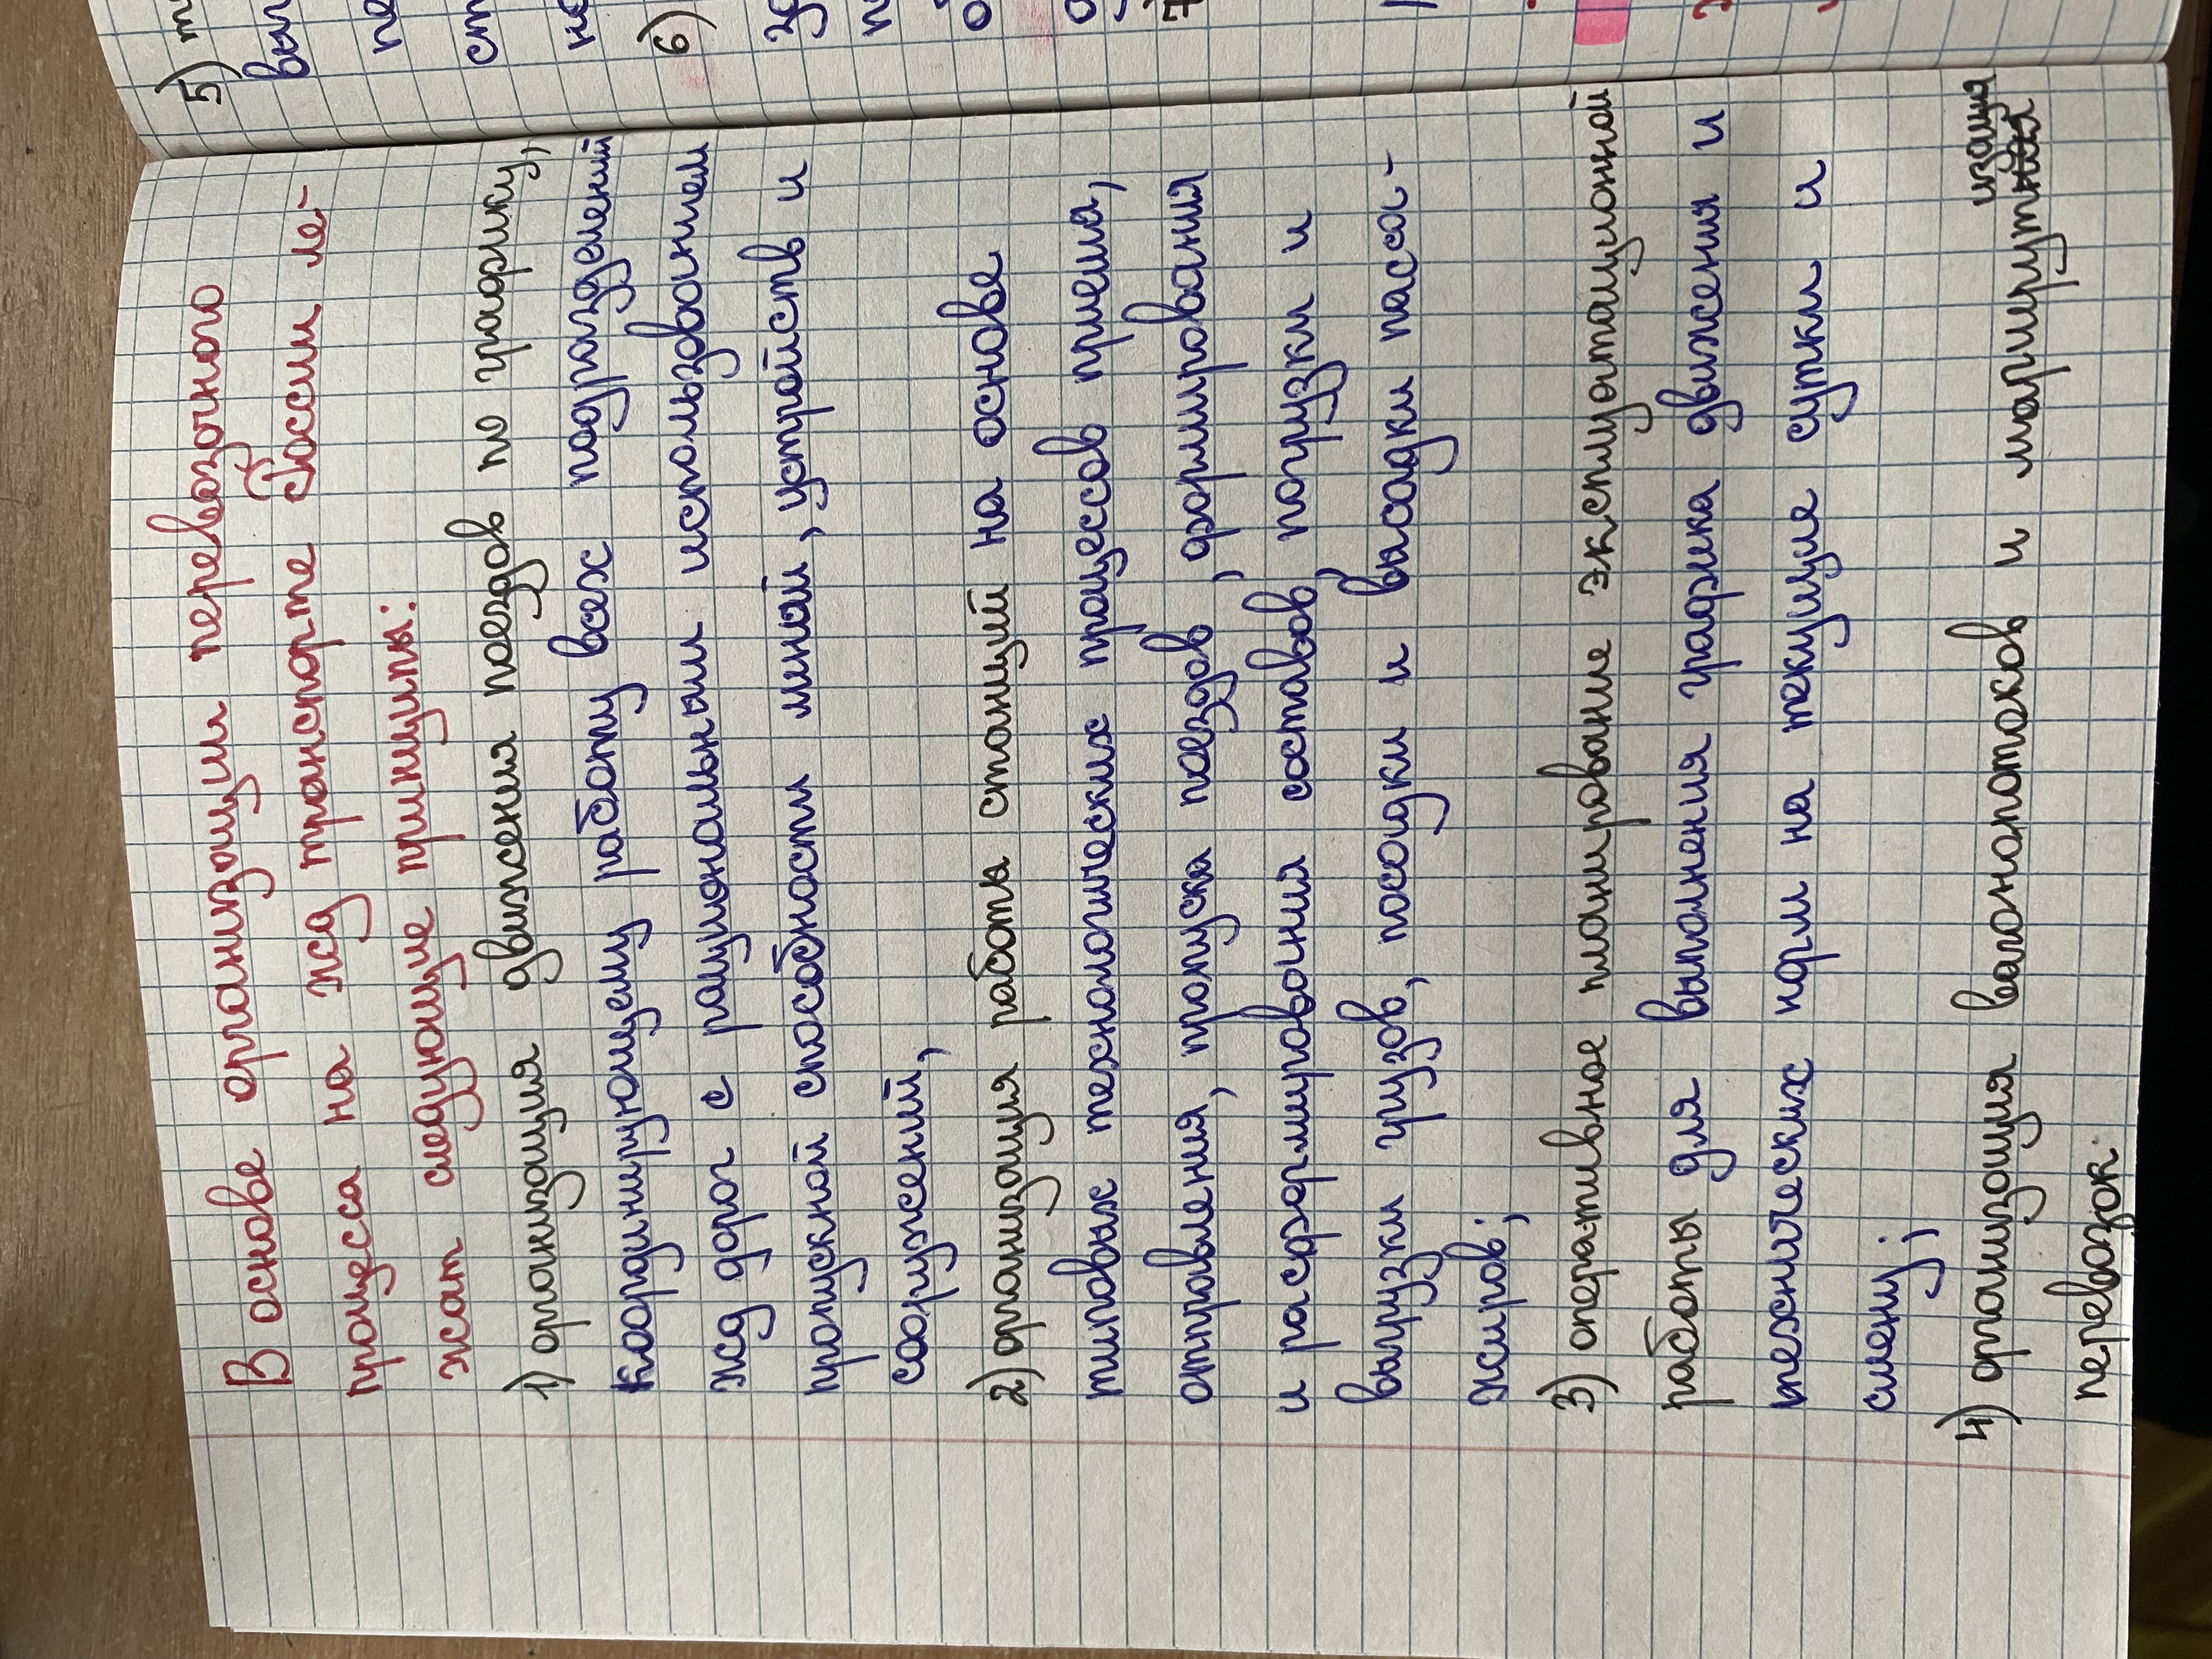 В основе организации перевозочного
процесса на жд транспорте России ле-
жат следующие принципы:
1) организация движения поездов по графику,
координирующему работу всех подразделений
жд дорог с рациональным использованием
пропускной способности линий, устройств и
сооружений,
2) организация работы станций на основе
типовых технологических процессов приема,
отправления, пропуска поездов, формирования
и расформирования составов, погрузки и
выгрузки грузов, посадки и высадки пасса-
жиров;
3) оперативное планирование эксплуатационной
работы для выполнения графика движения и
технических норм на текущие сутки и
смену;
4) организация вагонопотоков и маршрутизация
перевозок
5)
6)